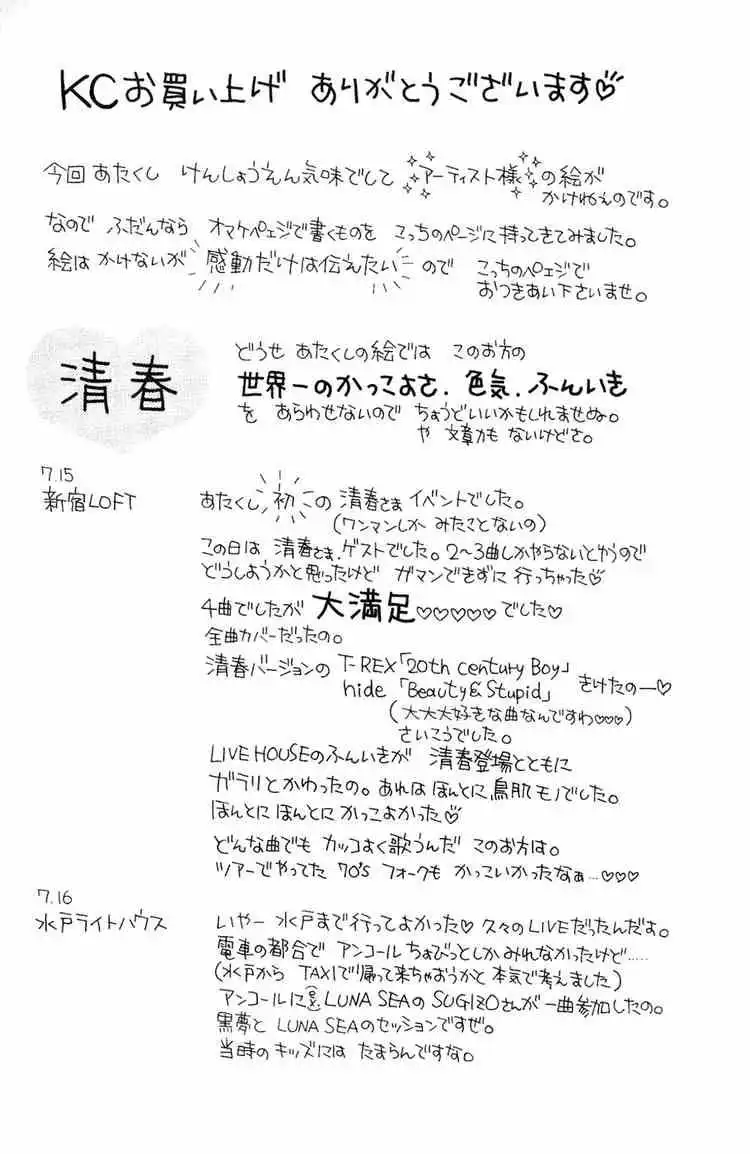 KCお買い上げ ありがとうございます♡
今回 あたくし けんしょうえん気味でして アーティスト様 の絵が
かけねぇのです。
なので ふだんなら オマケペェジで書くものを こっちのページに持ってきてみました。
絵は かけないが 感動だけは伝えたい ので こっちのペェジで
おつきあい下さいませ。
清春
どうせ あたくしの絵では このお方の
世界一のかっこよさ、色気、ふんいき
を あらわせないので ちょうどいいかもしれませぬ。
や 文章力も ないけどさ。
7.15
新宿LOFT
あたくし 初 の 清春さま イベントでした。
(ワンマンしか みたことないの)
この日は 清春さま、ゲストでした。2〜3曲しかやらないとゆうので
どうしようかと思ったけど ガマンできずに 行っちゃった♡
4曲でしたが 大満足♡♡♡♡♡でした♡
全曲カバーだったの。
清春バージョンの T-REX「20th century Boy」
hide「Beauty&Stupid」 きけたのー♡
(大大大好きな曲なんですわ♡♡♡)
さいこうでした。
LIVE HOUSEのふんいきが 清春登場とともに
ガラリとかわったの。あれは ほんとに鳥肌モノでした。
ほんとに ほんとに かっこよかった♡
どんな曲でも カッコよく歌うんだ このお方は。
ツアーでやってた 70's フォークも かっこいかったなぁ…♡♡♡
7.16
水戸ライトハウス
いやー 水戸まで行ってよかった♡ 久々のLIVEだったんだよ。
電車の都合で アンコール ちょびっとしか みれなかったけど……
(水戸から TAXIで帰って来ちゃおうかと 本気で考えました)
アンコールに LUNA SEAの SUGIZOさんが 一曲参加したの。
黒夢と LUNA SEAのセッションですぜ。
当時のキッズには たまらんですな。